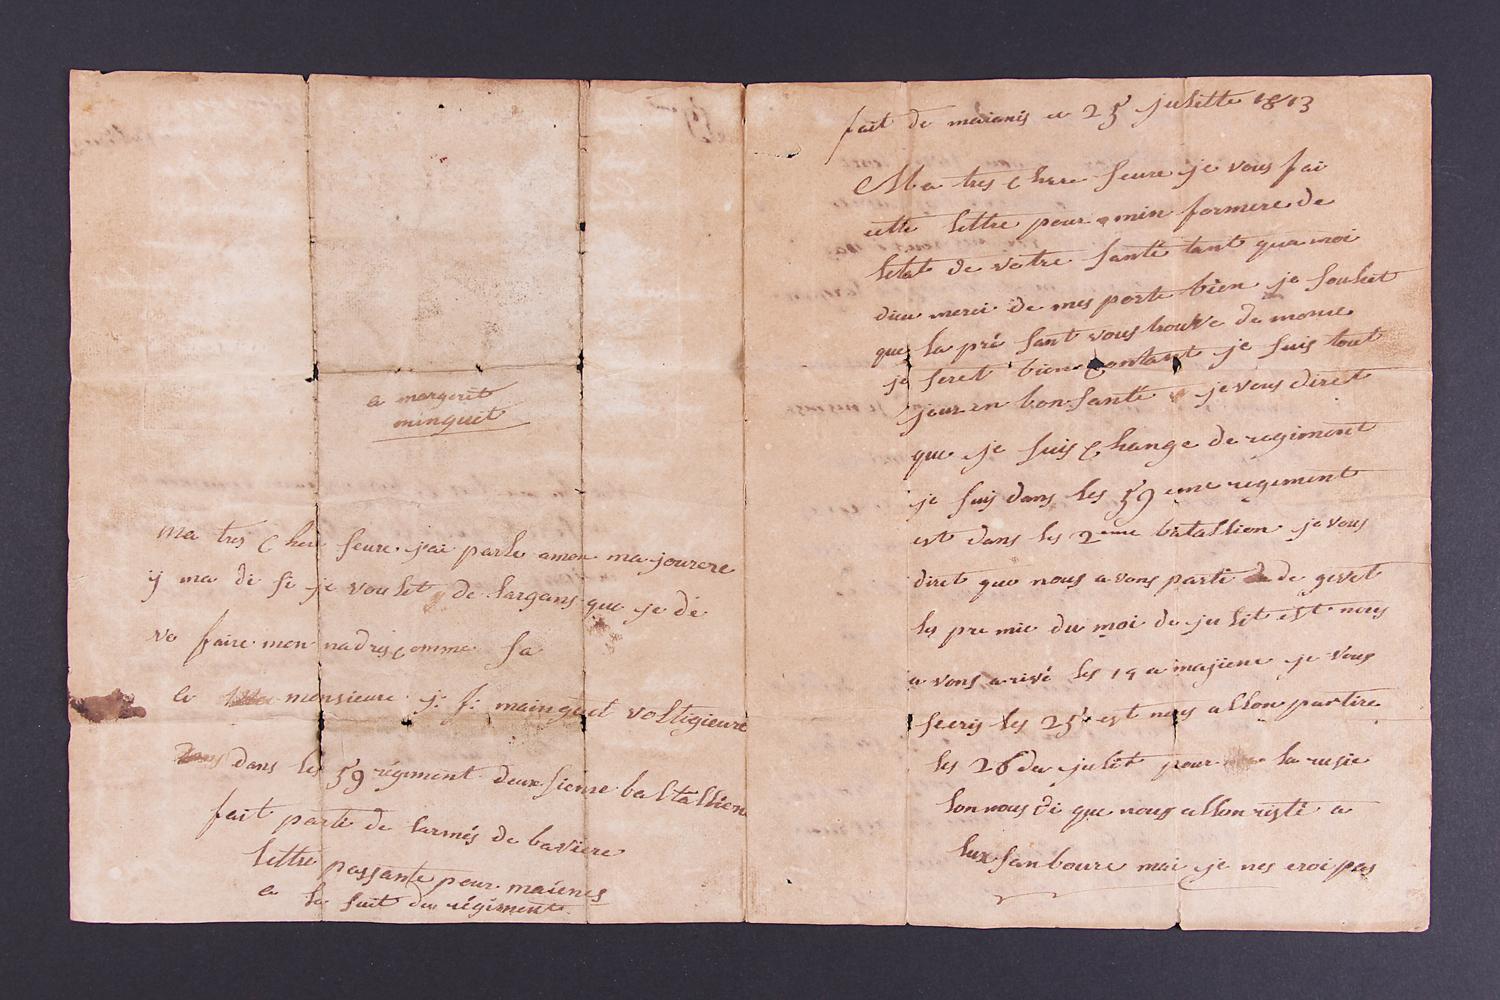 fait de maianis ce 25 juliette 1813
Ma tres chere seure je vous fai
cette lettre pour min formere de
letat de votre santé tant qua moi
dieu merci de mes porte bien je souhet
que la pré sant vous trouve de mome
je seret bien contant je suis tout
jour en bon santé je vous diret
que je suis change de regiment
je suis dans les 59 eme regement
est dans les 2eme batallion je vous
diret que nous avons parti de givet
les pre mie du moi de julit est nous
a vons a rivé les 19 a majiene je vous
secris les 25 est nous allon partire
les 26 du julit pour la rusie
lon nous di que nous allon risté a
luxsan boure mai je nes croi pas
a margerit
minguet
Ma tres chere seure j'ai parle amon ma jourere
ij ma di si je voulet de largans que je dé
ve faire mon nadris comme sa
a monsieure j: j: mainguet voltigieure
dans les 59 régiment deux sieme baltallien
fait parti de larmés de baviere
lettre passante pour maienes
a la suit du régiment